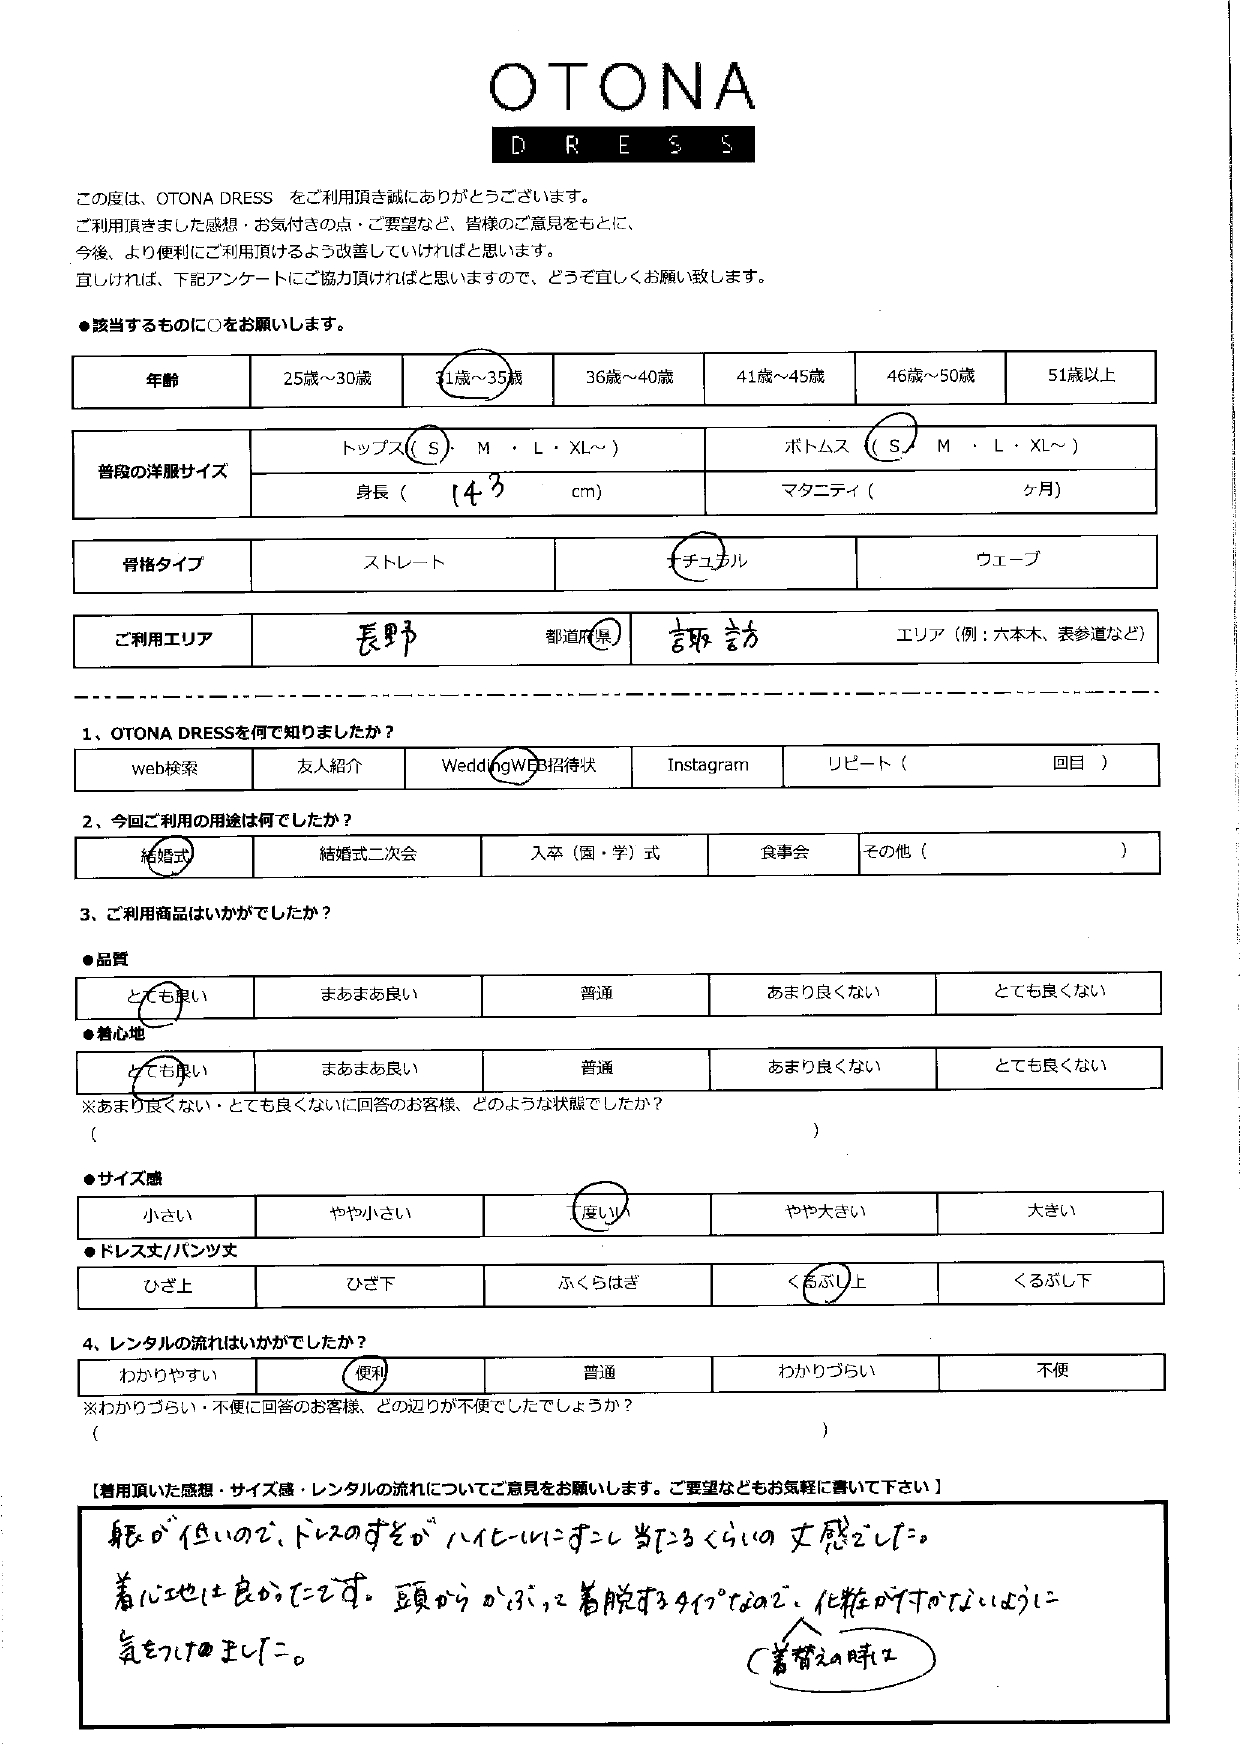 OTONA
DRESS
この度は、OTONA DRESS をご利用頂き誠にありがとうございます。
ご利用頂きました感想・お気付きの点・ご要望など、皆様のご意見をもとに、
今後、より便利にご利用頂けるよう改善していければと思います。
宜しければ、下記アンケートにご協力頂ければと思いますので、どうぞ宜しくお願い致します。
●該当するものに○をお願いします。
年齢 25歳～30歳 31歳～35歳 36歳～40歳 41歳～45歳 46歳～50歳 51歳以上
普段の洋服サイズ トップス ( S ・ M ・ L ・ XL～ ) ボトムス ( S ・ M ・ L ・ XL～ )
身長 ( 143 cm) マタニティ ( ヶ月)
骨格タイプ ストレート ナチュラル ウェーブ
ご利用エリア 長野 都道府県 諏訪 エリア（例：六本木、表参道など）
1、OTONA DRESSを何で知りましたか？
web検索 友人紹介 WeddingWEB招待状 Instagram リピート（ 回目 ）
2、今回ご利用の用途は何でしたか？
結婚式 結婚式二次会 入卒（園・学）式 食事会 その他（ ）
3、ご利用商品はいかがでしたか？
●品質
とても良い まあまあ良い 普通 あまり良くない とても良くない
●着心地
とても良い まあまあ良い 普通 あまり良くない とても良くない
※あまり良くない・とても良くないに回答のお客様、どのような状態でしたか？
( )
●サイズ感
小さい やや小さい 丁度いい やや大きい 大きい
●ドレス丈/パンツ丈
ひざ上 ひざ下 ふくらはぎ くるぶし上 くるぶし下
4、レンタルの流れはいかがでしたか？
わかりやすい 便利 普通 わかりづらい 不便
※わかりづらい・不便に回答のお客様、どの辺りが不便でしたでしょうか？
( )
【着用頂いた感想・サイズ感・レンタルの流れについてご意見をお願いします。ご要望などもお気軽に書いて下さい】
身長が低いので、ドレスのすそがハイヒールにすこし当たるくらいの丈感でした。
着心地は良かったです。頭からかぶって着脱するタイプなので、化粧が付かないように
気をつけました。
着替えの時は